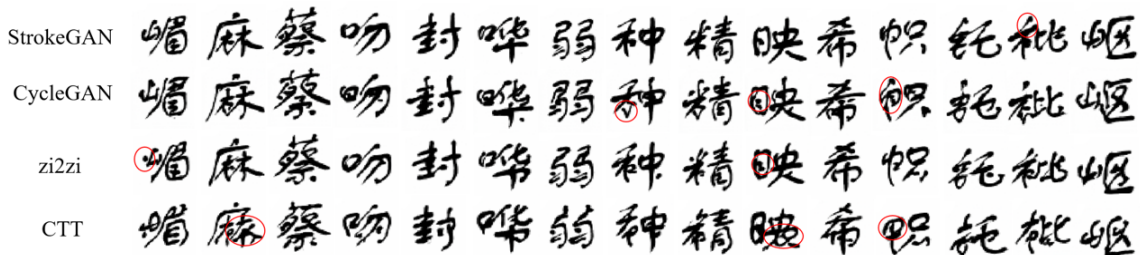 StrokeGAN 嵋 麻 蔡 吻 封 哗 弱 种 精 映 希 帜 秕 岖
CycleGAN 嵋 麻 蔡 吻 封 哗 弱 种 精 映 希 帜 秕 岖
zi2zi 嵋 麻 蔡 吻 封 哗 弱 种 精 映 希 帜 秕 岖
CTT 嵋 麻 蔡 吻 封 哗 弱 种 精 映 希 帜 秕 岖